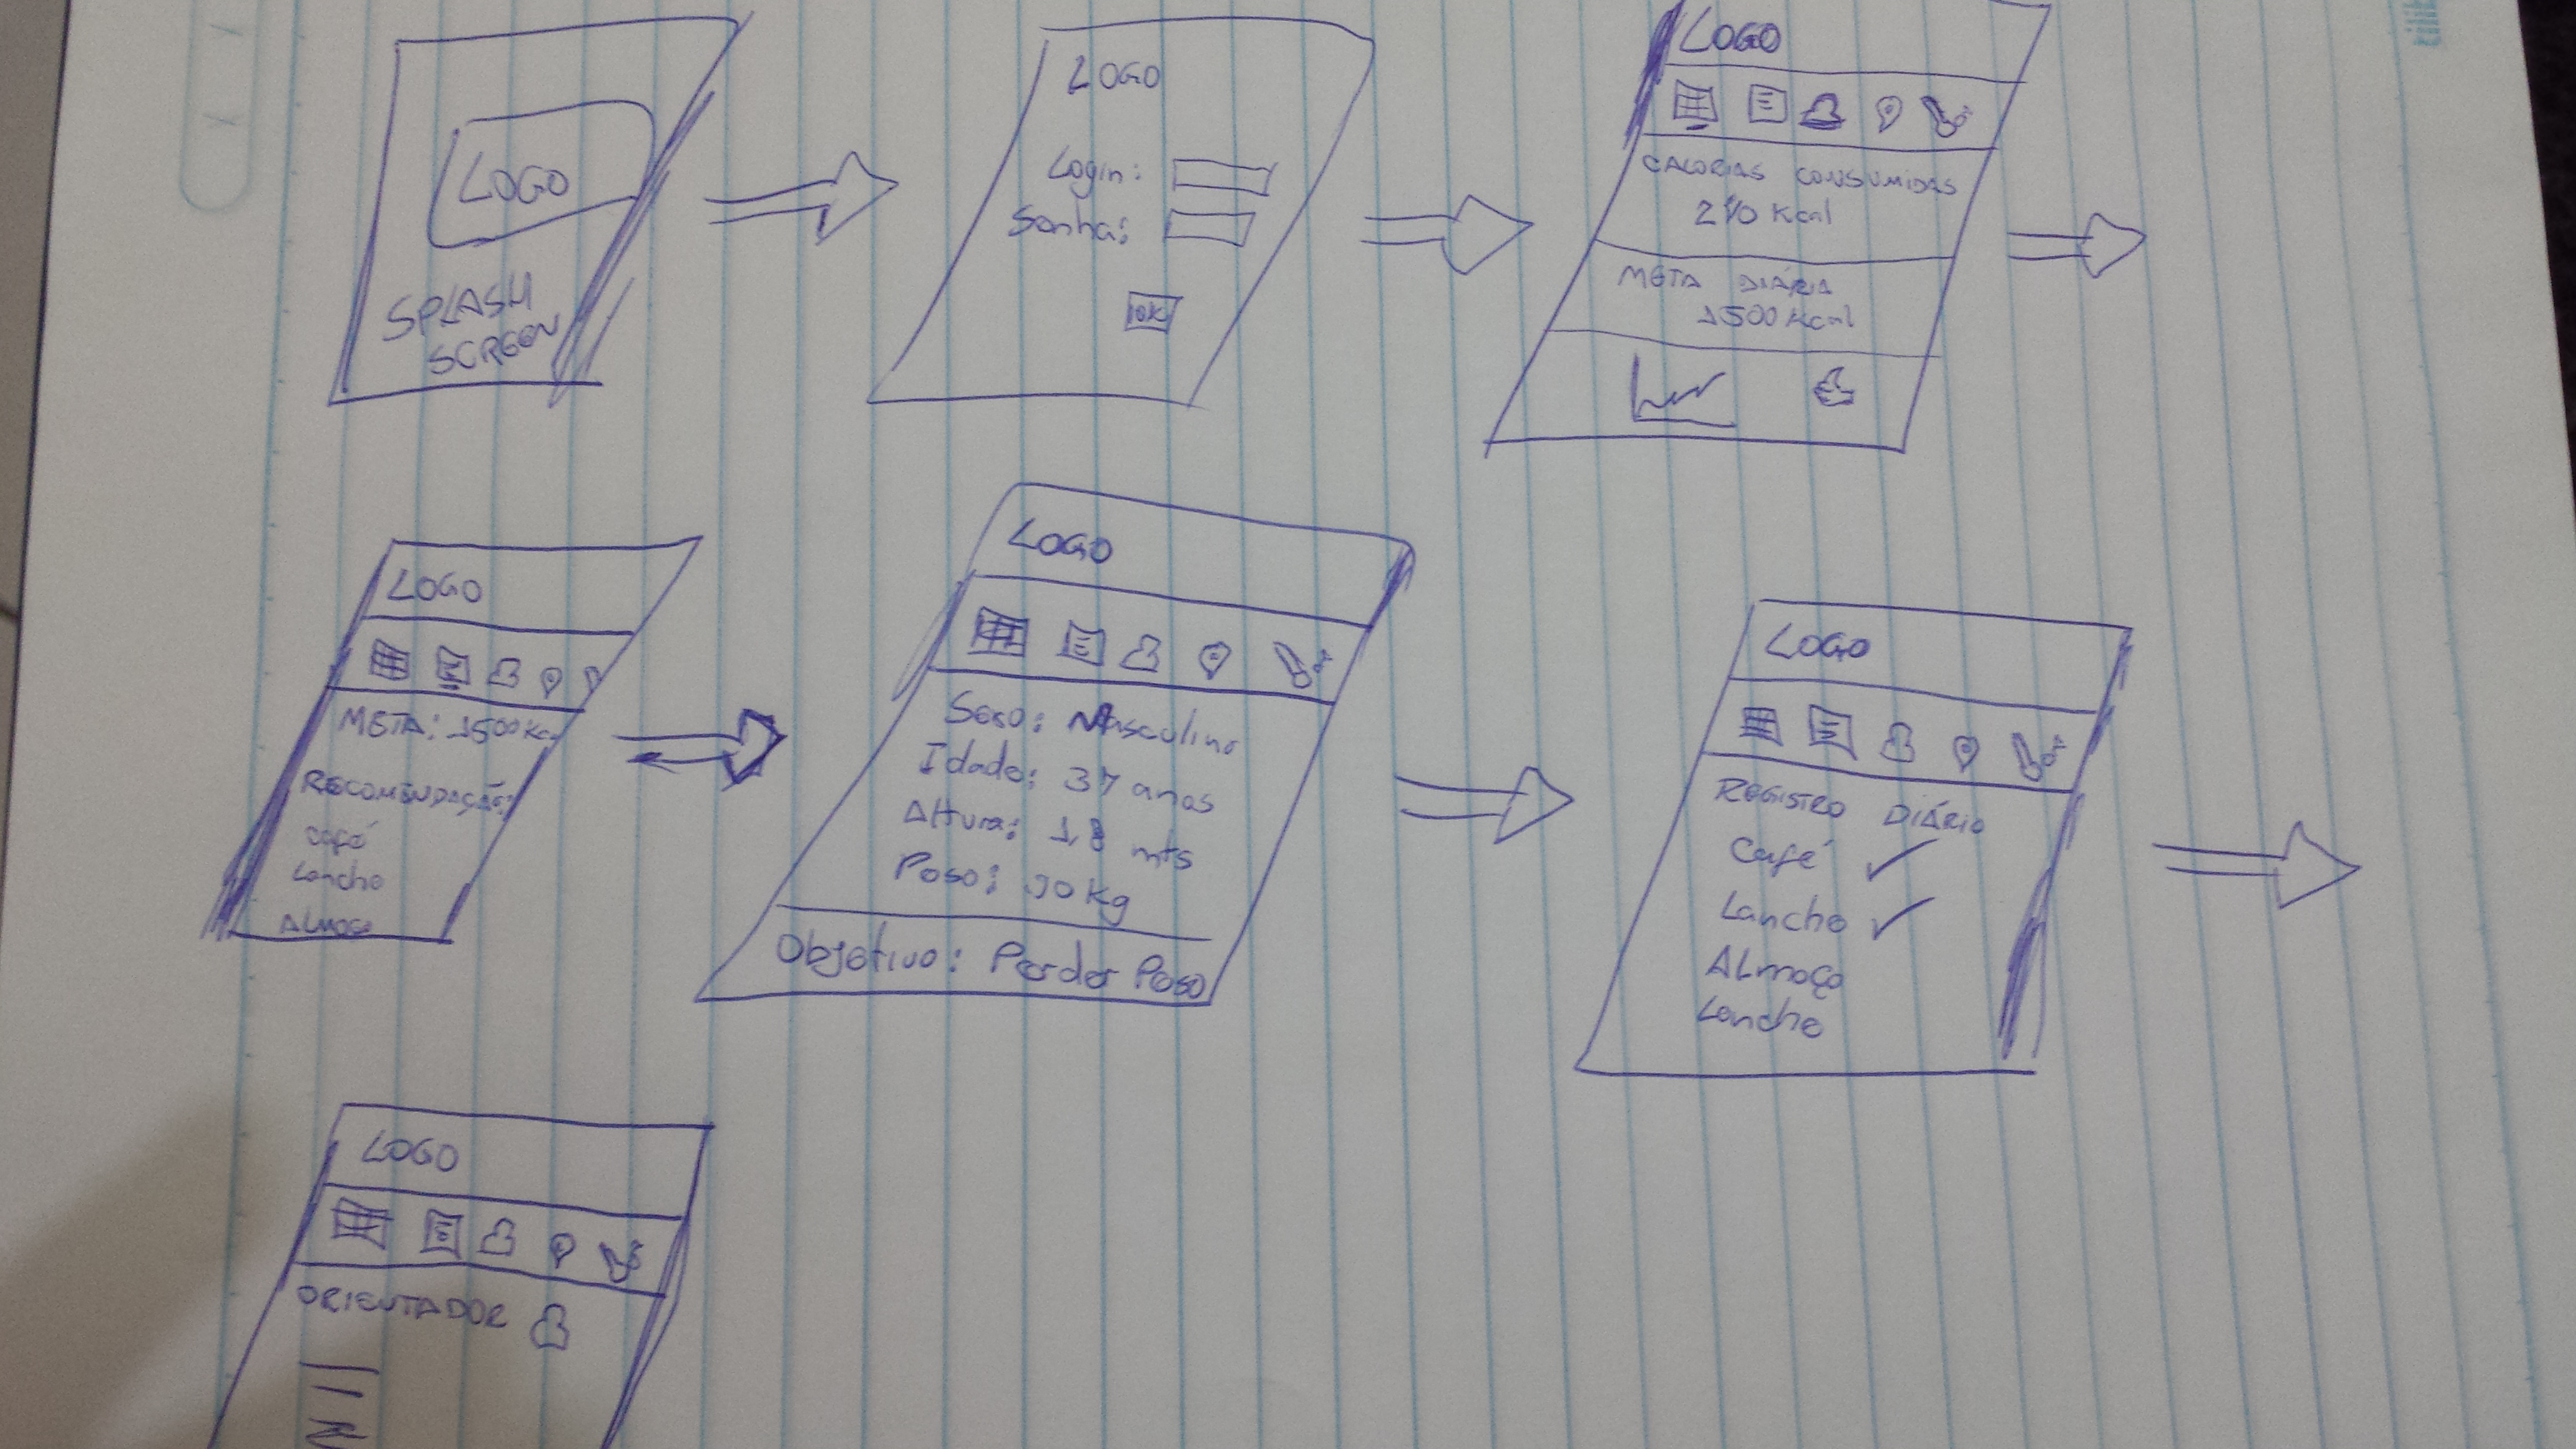 LOGO
SPLASH
SCREEN
LOGO
Login:
Senha:
OK
LOGO
CALORIAS CONSUMIDAS
Kcal
META DIÁRIA
1500 Kcal
LOGO
META: 1500 Kcal
RECOMENDAÇÃO:
Café
Lanche
ALMOÇO
LOGO
Sexo: Masculino
Idade: 37 anos
Altura: 1,8 mts
Peso: 90 Kg
Objetivo: Perder Peso
LOGO
REGISTRO DIÁRIO
Café ✓
Lanche ✓
ALmoço
Lanche
LOGO
ORIENTADOR